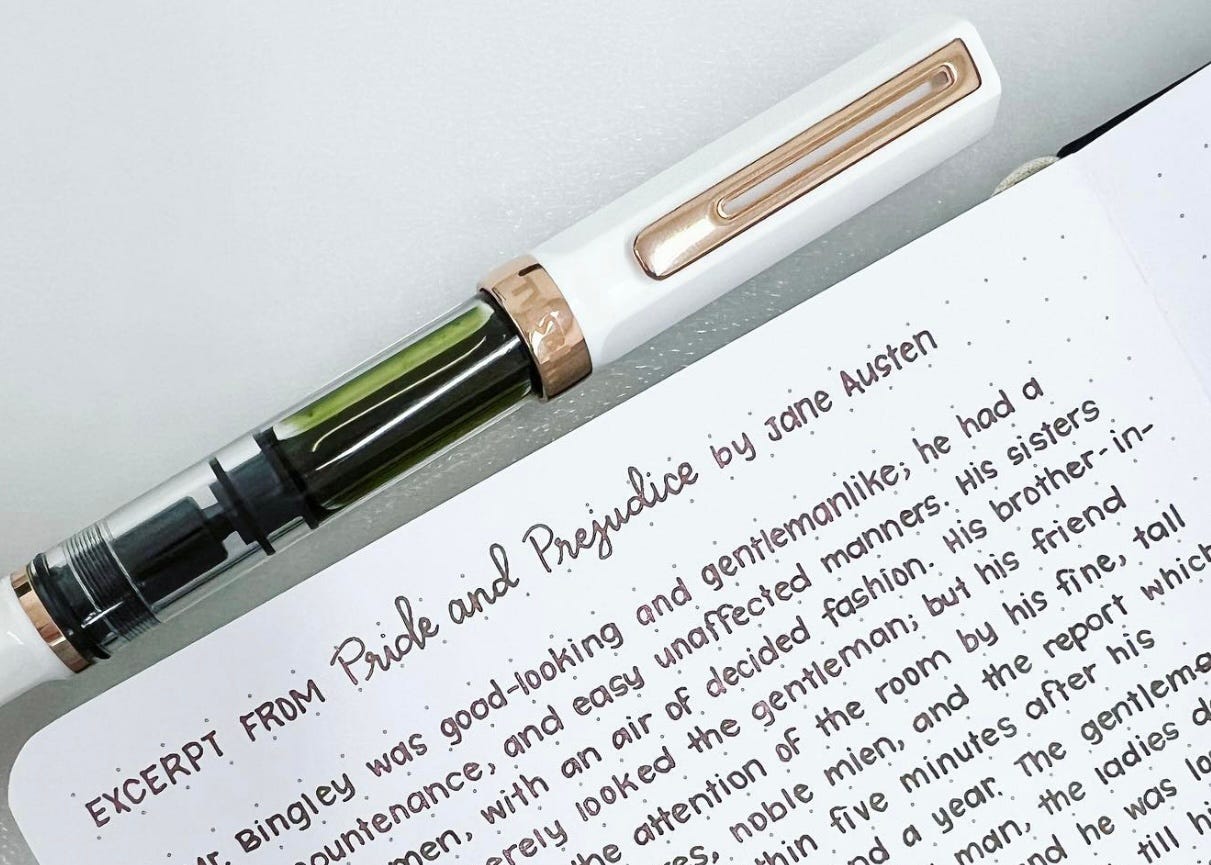 TWSBI
EXCERPT FROM Pride and Prejudice by Jane Austen
Mr. Bingley was good-looking and gentlemanlike; he had a
ountenance, and easy unaffected manners. His sisters
men, with an air of decided fashion. His brother-in-
erely looked the gentleman; but his friend
he attention of the room by his fine, tall
es, noble mien, and the report which
thin five minutes after his
nd a year. The gentleme
man, the ladies d
nd he was lo
till hi